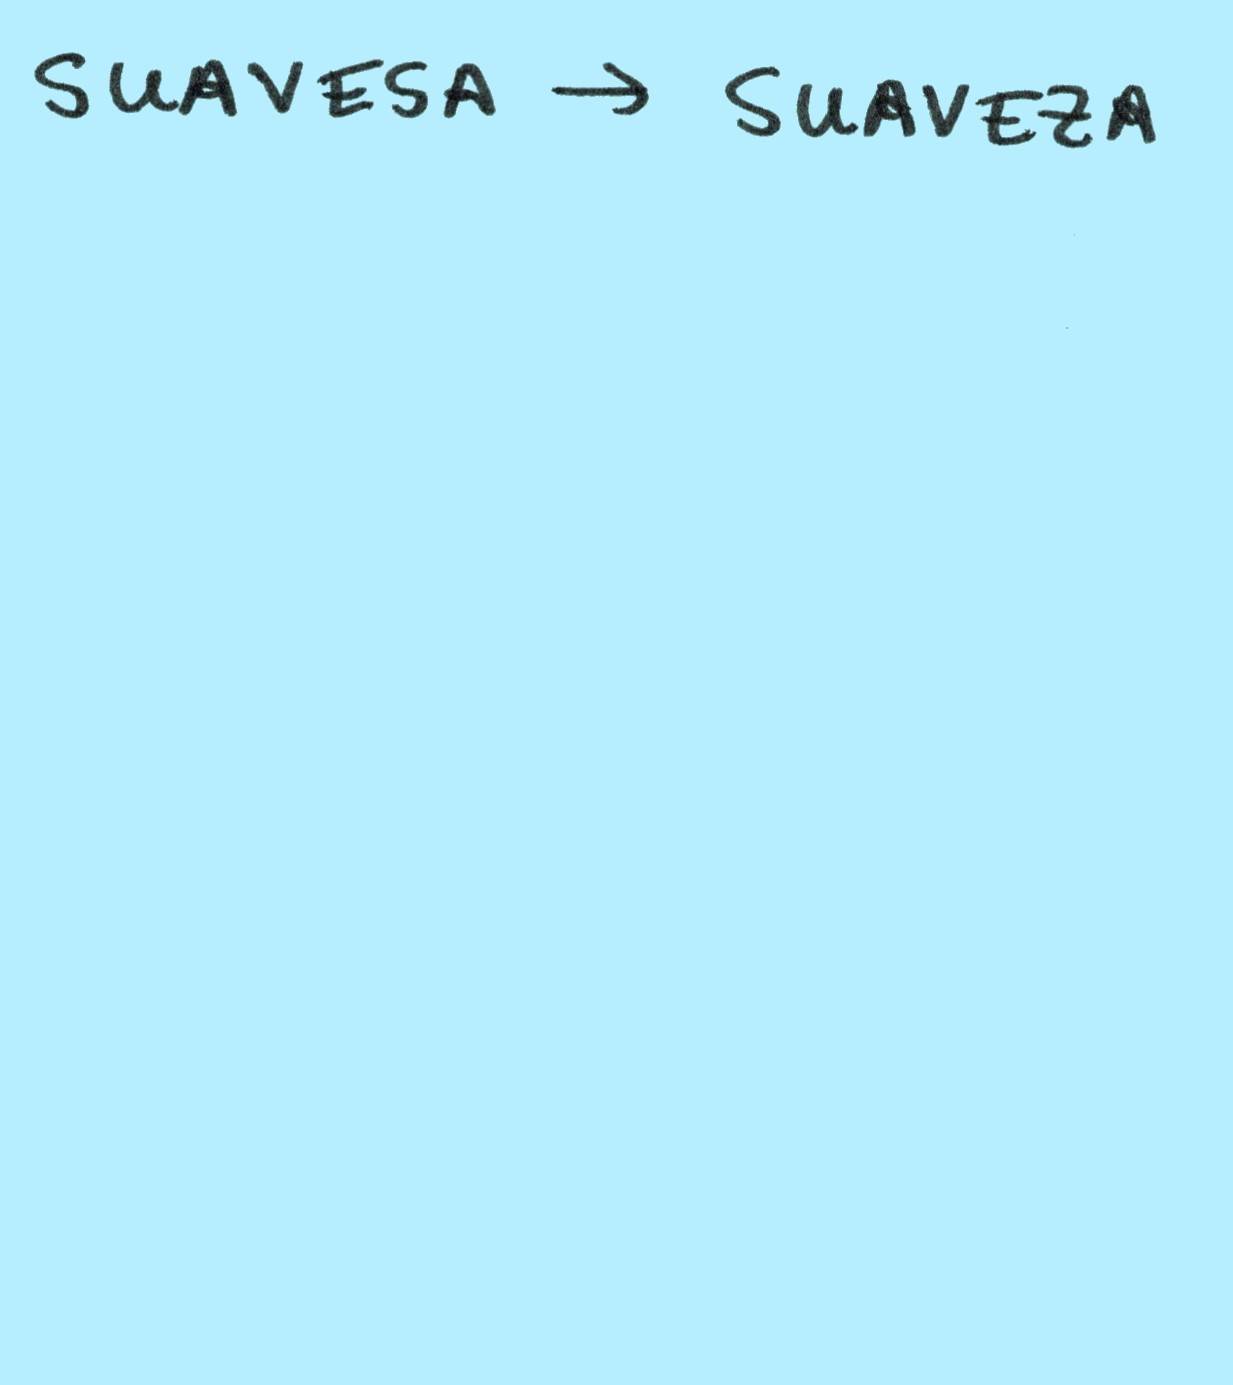 SUAVESA → SUAVEZA